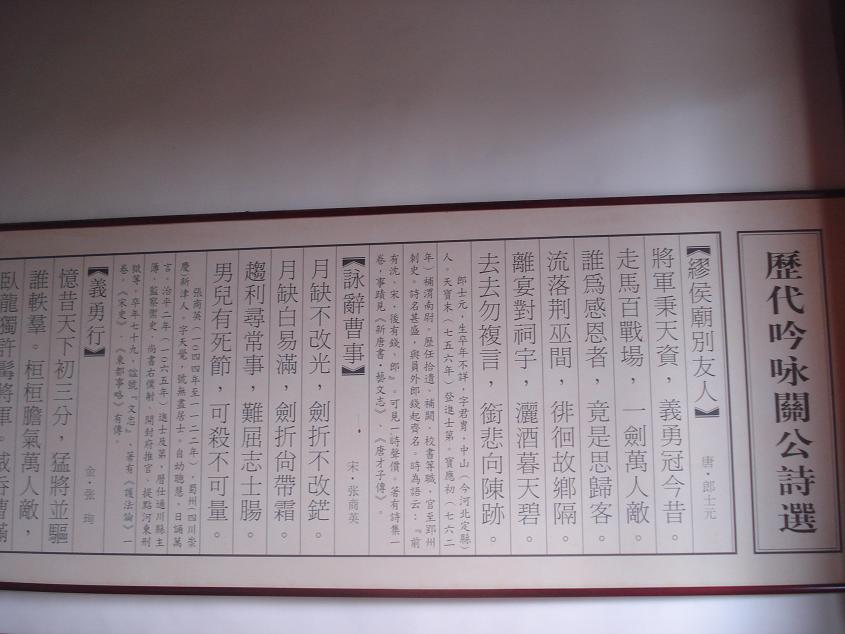 歷代吟咏關公詩選
【繆侯廟別友人】
唐·郎士元
將軍秉天資，義勇冠今昔。
走馬百戰場，一劍萬人敵。
誰爲感恩者，竟是思歸客。
流落荆巫間，徘徊故鄉隔。
離宴對祠宇，灑酒暮天碧。
去去勿複言，銜悲向陳跡。
郎士元，生卒年不詳，字君冑，中山（今河北定縣）
人。天寶末（七五六年）登進士第。寶應初（七六二
年）補渭南尉。歷任拾遺、補闕、校書等職，官至郢州
刺史。詩名甚盛，與員外郎錢起齊名。時為語云：『前
有沈、宋，後有錢、郎』。可見一時聲價。著有詩集一
卷，事蹟見《新唐書·藝文志》、《唐才子傳》。
【詠辭曹事】
宋·张商英
月缺不改光，劍折不改鋩。
月缺白易滿，劍折尙帶霜。
趨利尋常事，難屈志士腸。
男兒有死節，可殺不可量。
張商英（一〇四四年至一一二二年），蜀州（四川崇
慶）新津人。字天覺，號無盡居士。自幼聰慧，日誦萬
言。治平二年（一〇六五年）進士及第，曆仕通川縣主
簿、監察禦史、尚書右僕射、開封府推官、提點河東刑
獄等。卒年七十九，諡號『文忠』、著有《護法論》一
卷。《宋史》、《東都事略》有傳。
【義勇行】
金·张 珣
憶昔天下初三分，猛將並驅
誰軼羣。桓桓膽氣萬人敵，
臥龍獨許髯將軍。威吞曹瞞